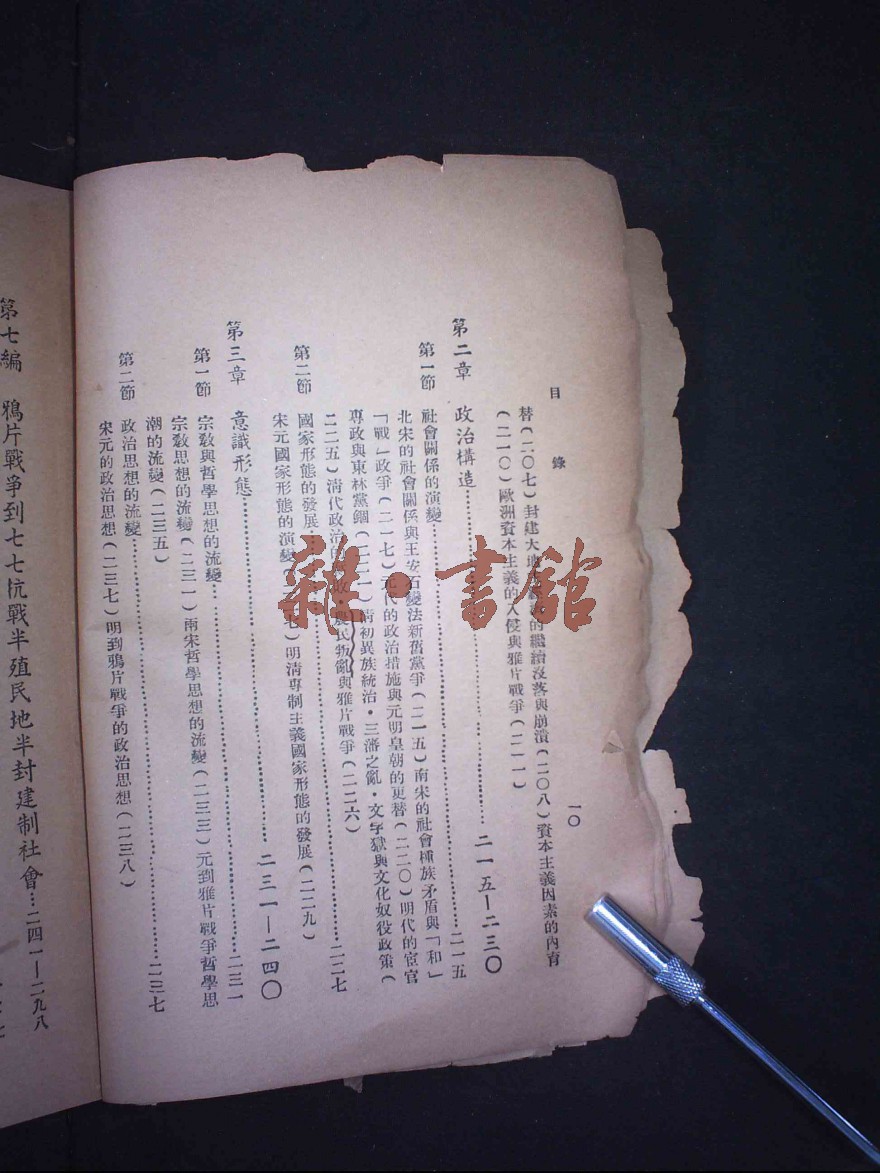 目錄
一〇
替(二〇七)封建大地的繼續沒落與崩潰(二〇八)資本主義因素的內育
(二一〇)歐洲資本主義的入侵與雅片戰爭(二一一)
第二章 政治構造……二一五—二三〇
第一節 社會關係的演變……二一五
北宋的社會關係與王安石變法新舊黨爭(二一五)南宋的社會種族矛盾與「和」
「戰」政爭(二一七)元代的政治措施與元明皇朝的更替(二二〇)明代的宦官
專政與東林黨錮(二二一)清初異族統治·三藩之亂·文字獄與文化奴役政策(
二二五)清代政治的農民叛亂與雅片戰爭(二二六)
第二節 國家形態的發展……二二七
宋元國家形態的演變 明清專制主義國家形態的發展(二二九)
第三章 意識形態……二三一—二四〇
第一節 宗教與哲學思想的流變……二三一
宗教思想的流變(二三一)兩宋哲學思想的流變(二三三)元到雅片戰爭哲學思
潮的流變(二三五)
第二節 政治思想的流變……二三七
宋元的政治思想(二三七)明到鴉片戰爭的政治思想(二三八)
第七編 鴉片戰爭到七七抗戰半殖民地半封建制社會…二四一—二九八
雜·書館